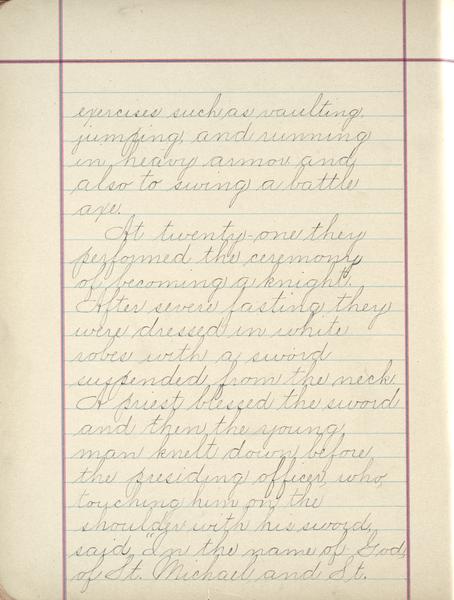 exercises such as vaulting,
jumping, and running
in heavy armor and
also to swing a battle
axe.
At twenty-one they
performed the ceremony
of becoming a knight.
After severe fasting they
were dressed in white
robes with a sword
suspended from the neck.
A priest blessed the sword
and then the young
man knelt down before
the presiding officer, who,
touching him on the
shoulder with his sword,
said, "In the name of God,
of St. Michael and St.